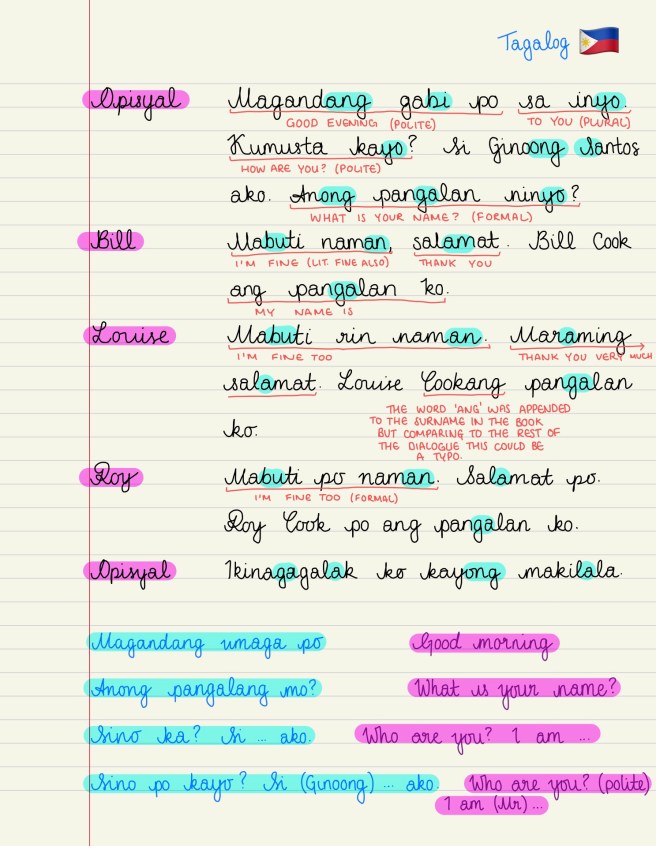 Tagalog
Opisyal Magandang gabi po sa inyo.
GOOD EVENING (POLITE) TO YOU (PLURAL)
Kumusta kayo? Si Ginoong Santos
HOW ARE YOU? (POLITE)
ako. Anong pangalan ninyo?
WHAT IS YOUR NAME? (FORMAL)
Bill Mabuti naman, salamat. Bill Cook
I'M FINE (LIT. FINE ALSO) THANK YOU
ang pangalan ko.
MY NAME IS
Louise Mabuti rin naman. Maraming
I'M FINE TOO THANK YOU VERY MUCH
salamat. Louise Cookang pangalan
THE WORD 'ANG' WAS APPENDED
TO THE SURNAME IN THE BOOK
ko. BUT COMPARING TO THE REST OF
THE DIALOGUE THIS COULD BE
A TYPO.
Roy Mabuti po naman. Salamat po.
I'M FINE TOO (FORMAL)
Roy Cook po ang pangalan ko.
Opisyal Ikinagagalak ko kayong makilala.
Magandang umaga po Good morning
Anong pangalang mo? What is your name?
Sino ka? Si ... ako. Who are you? I am ...
Sino po kayo? Si (Ginoong) ... ako. Who are you? (polite)
I am (Mr) ...